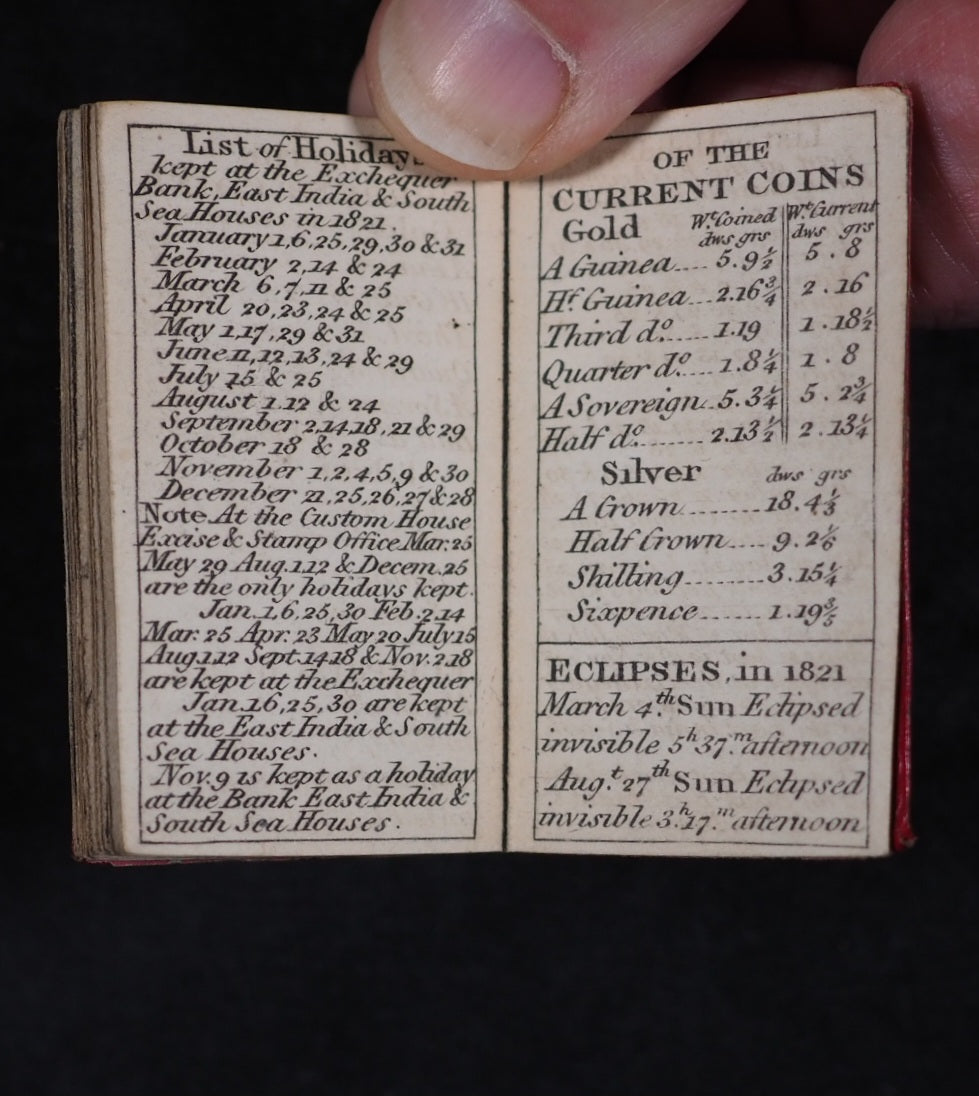 List of Holidays
kept at the Exchequer
Bank, East India & South
Sea Houses in 1821.
January 1,6,25,29,30 & 31
February 2,14 & 24
March 6,7,11 & 25
April 20,23,24 & 25
May 1,17,29 & 31
June 11,12,13,24 & 29
July 15 & 25
August 1.12 & 24
September 2,14,18,21 & 29
October 18 & 28
November 1,2,4,5,9 & 30
December 21,25,26,27 & 28
Note. At the Custom House
Excise & Stamp Office Mar. 25
May 29 Aug.1.12 & Decem. 25
are the only holidays kept.
Jan.1.6,25,30 Feb.2.14
Mar. 25 Apr. 23 May 20 July 15
Aug.1.12 Sept.14.18 & Nov.2.18
are kept at the Exchequer
Jan.1.6,25,30 are kept
at the East India & South
Sea Houses.
Nov. 9 is kept as a holiday
at the Bank East India &
South Sea Houses.
OF THE
CURRENT COINS
Gold Wt. Coined Wt. Current
dws grs dws grs
A Guinea.... 5.9½ 5.8
Hf. Guinea... 2.16¾ 2.16
Third do..... 1.19 1.18½
Quarter do.... 1.8¼ 1.8
A Sovereign.. 5.3¼ 5.2¾
Half do........ 2.13½ 2.13¼
Silver dws grs
A Crown........ 18.4⅓
Half Crown.... 9.2⅙
Shilling........ 3.15¼
Sixpence....... 1.19⅗
ECLIPSES, in 1821
March 4.th Sun Eclipsed
invisible 5h 37.m afternoon
Aug.t 27th Sun Eclipsed
invisible 3.h 17.m afternoon